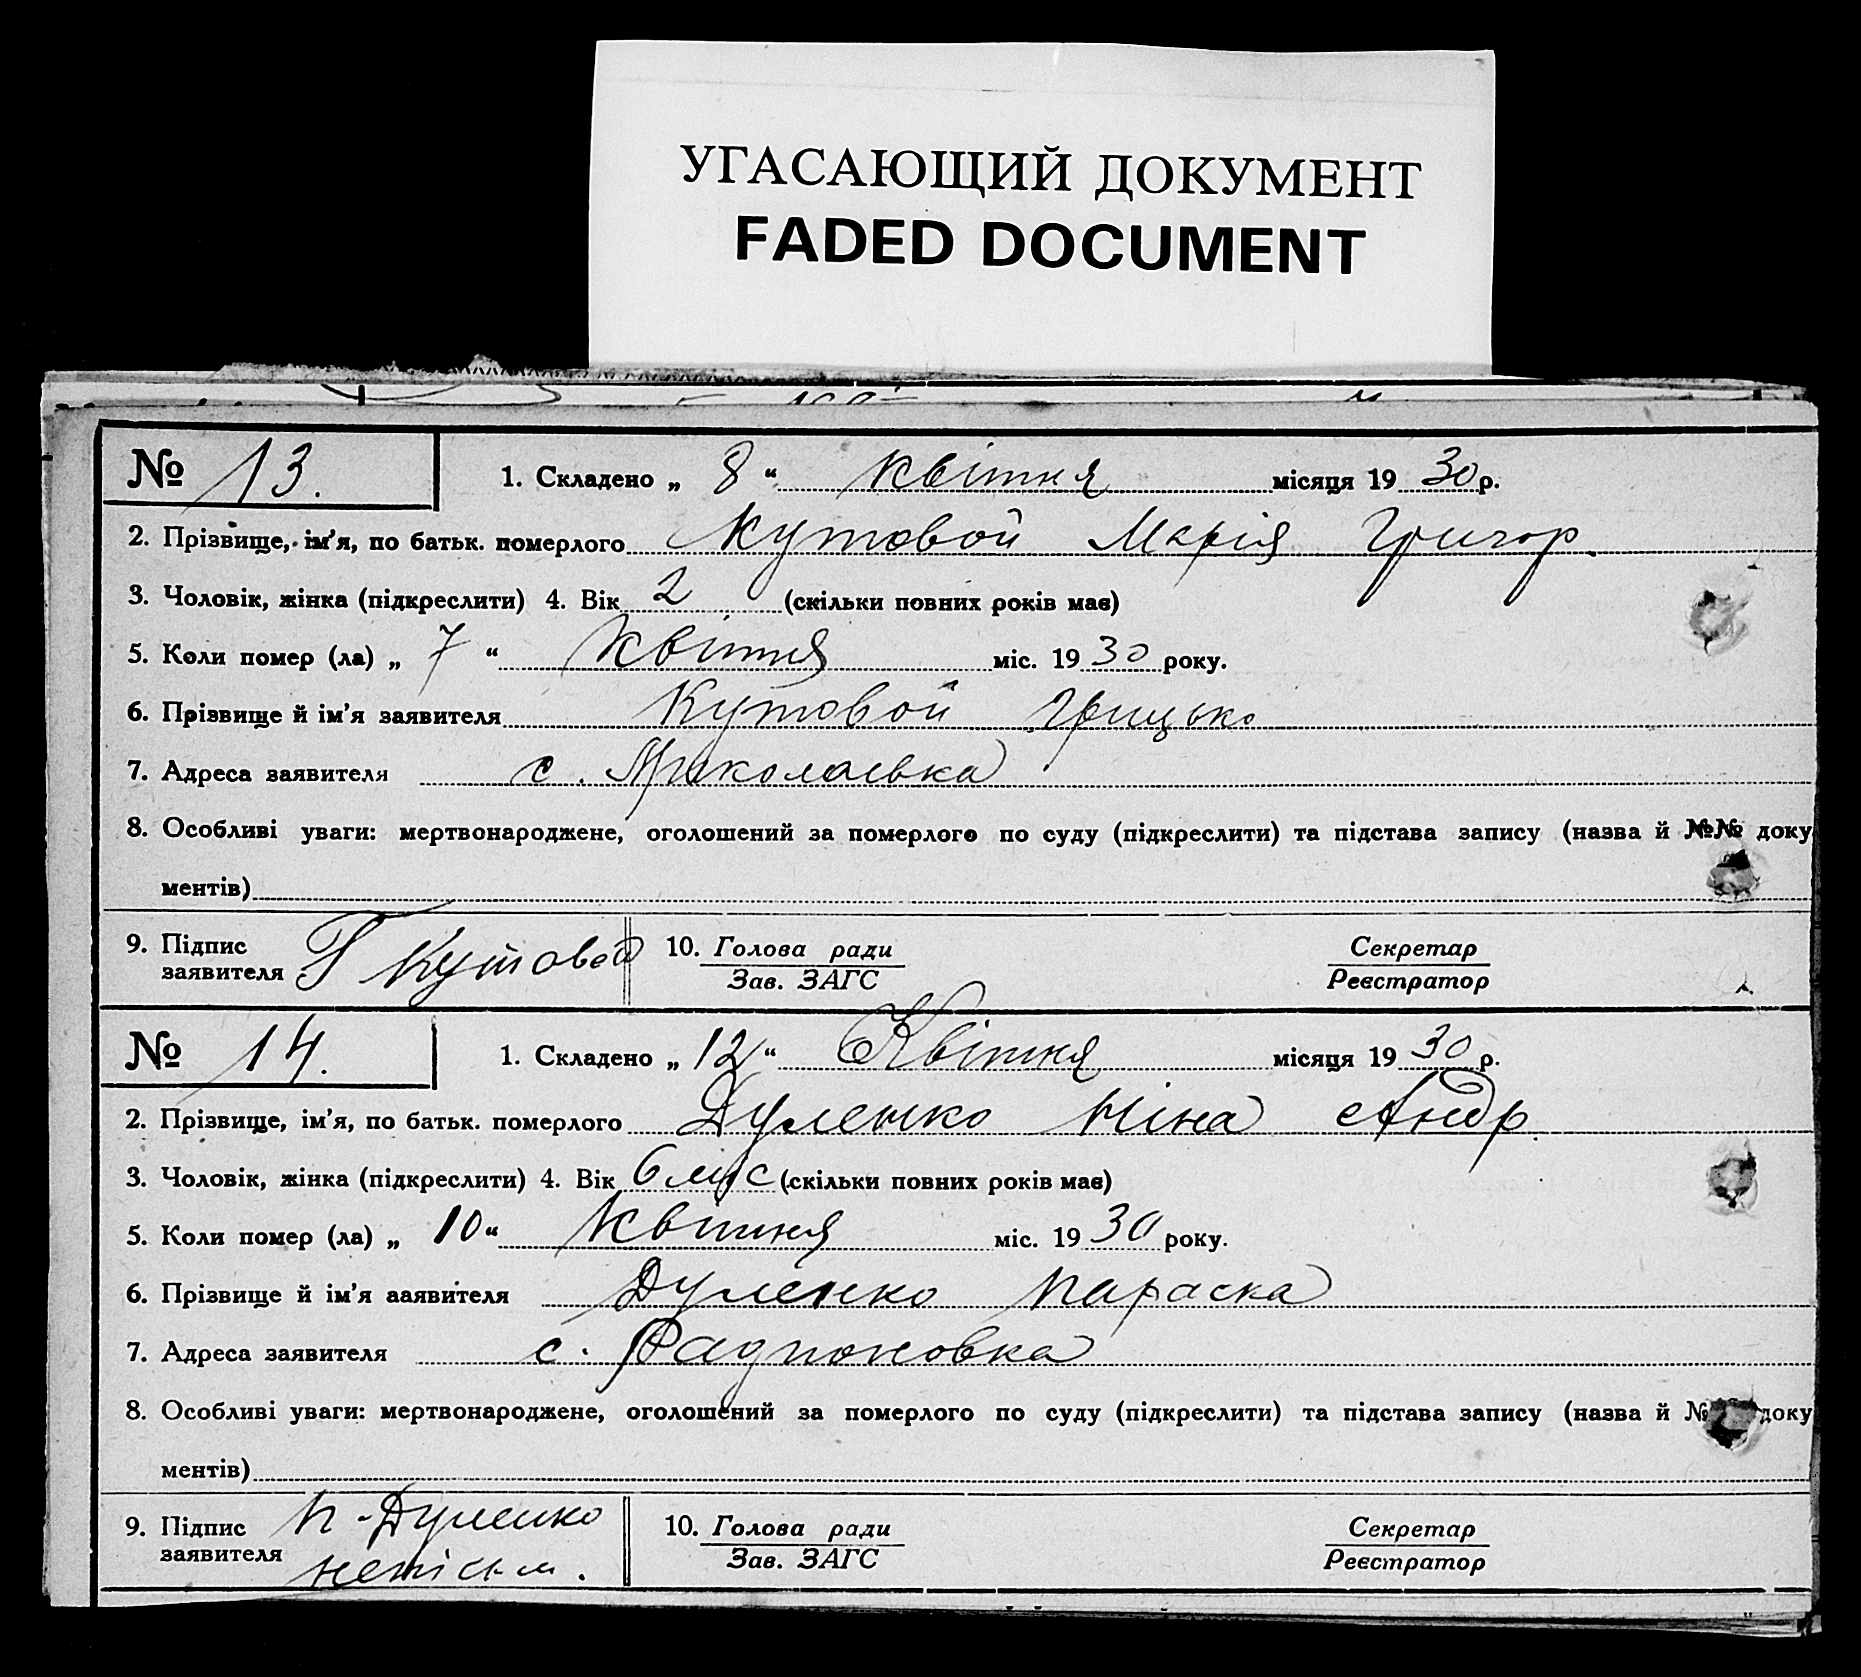 УГАСАЮЩИЙ ДОКУМЕНТ
FADED DOCUMENT
№ 13. 1. Складено „ 8 “ квітня місяця 19 30 р.
2. Прізвище, ім'я, по батьк. померлого Кутовой Марія Григор.
3. Чоловік, жінка (підкреслити) 4. Вік 2 (скільки повних років має)
5. Коли помер (ла) „ 7 “ квітня міс. 19 30 року.
6. Прізвище й ім'я заявителя Кутовой Грицько
7. Адреса заявителя с. Миколаєвка
8. Особливі уваги: мертвонароджене, оголошений за померлого по суду (підкреслити) та підстава запису (назва й №№ доку
ментів)
9. Підпис заявителя Г Кутовой 10. Голова ради Секретар
Зав. ЗАГС Реєстратор
№ 14. 1. Складено „ 12 “ Квітня місяця 19 30 р.
2. Прізвище, ім'я, по батьк. померлого Дуленко Ніна Андр.
3. Чоловік, жінка (підкреслити) 4. Вік 6 міс (скільки повних років має)
5. Коли помер (ла) „ 10 “ Квітня міс. 19 30 року.
6. Прізвище й ім'я ааявителя Дуленко Параска
7. Адреса заявителя с. Радионовка
8. Особливі уваги: мертвонароджене, оголошений за померлого по суду (підкреслити) та підстава запису (назва й № доку
ментів)
9. Підпис заявителя П-Дуленко 10. Голова ради Секретар
неписьм. Зав. ЗАГС Реєстратор